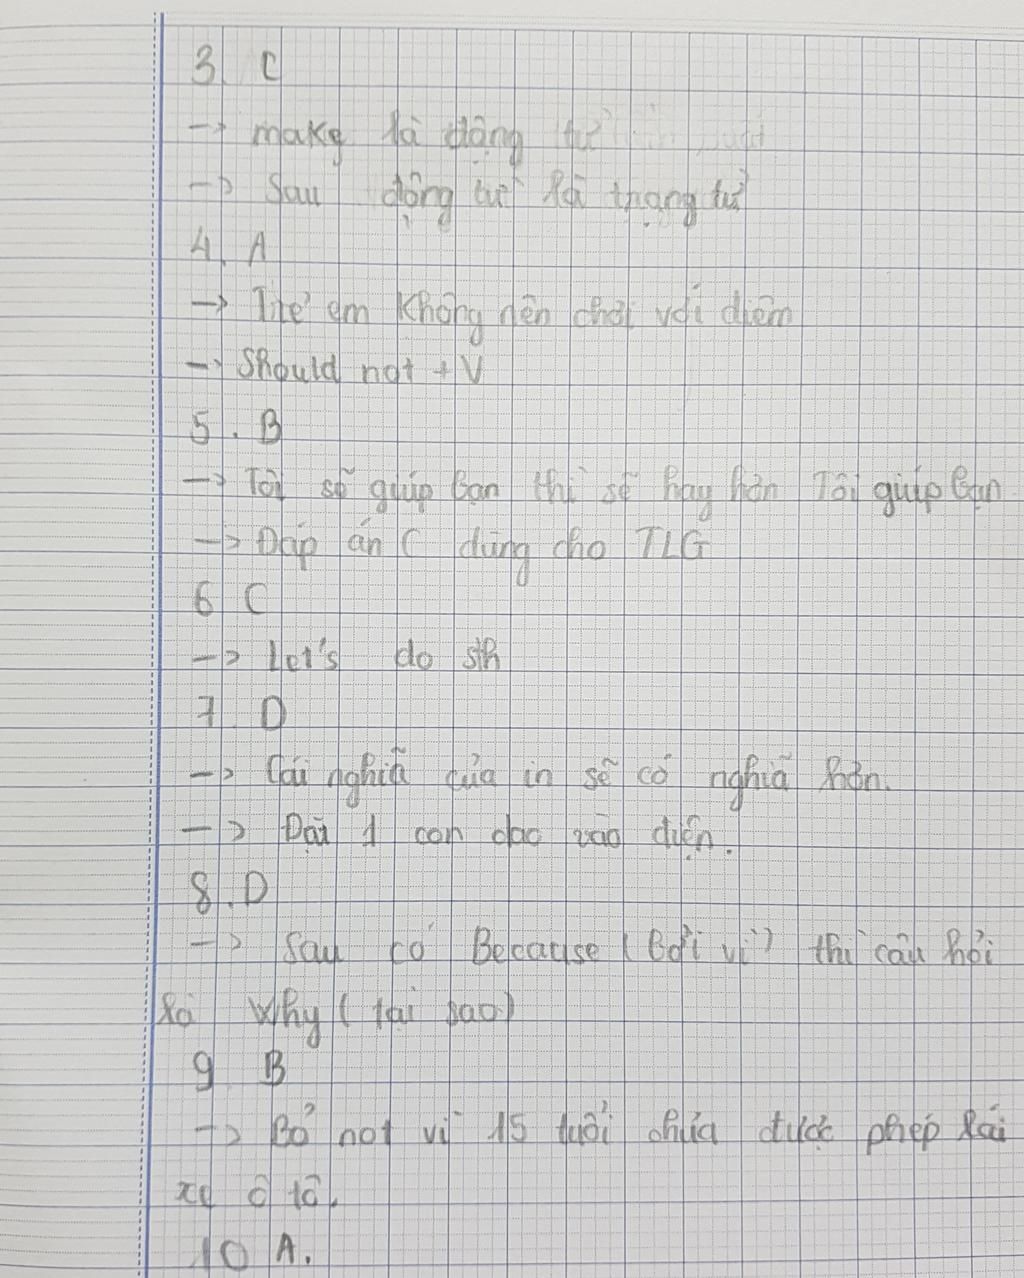 3. C
-> make là động từ
-> Sau động từ là trạng từ
4. A
-> Trẻ em không nên chơi với diêm
-> Should not + V
5. B
-> Tôi sẽ giúp bạn thì sẽ hay hơn Tôi giúp bạn
-> Đáp án C dùng cho TLG
6 C
-> Let's do sth
7. D
-> Cái nghiã của in sẽ có nghiã hơn.
-> 1 con dao vào điện.
8. D
-> Sau có Because (bởi vì) thì câu hỏi
là Why (tại sao)
9 B
-> Bỏ not vì 15 tuổi chưa được phép lái
xe ô tô.
10 A.